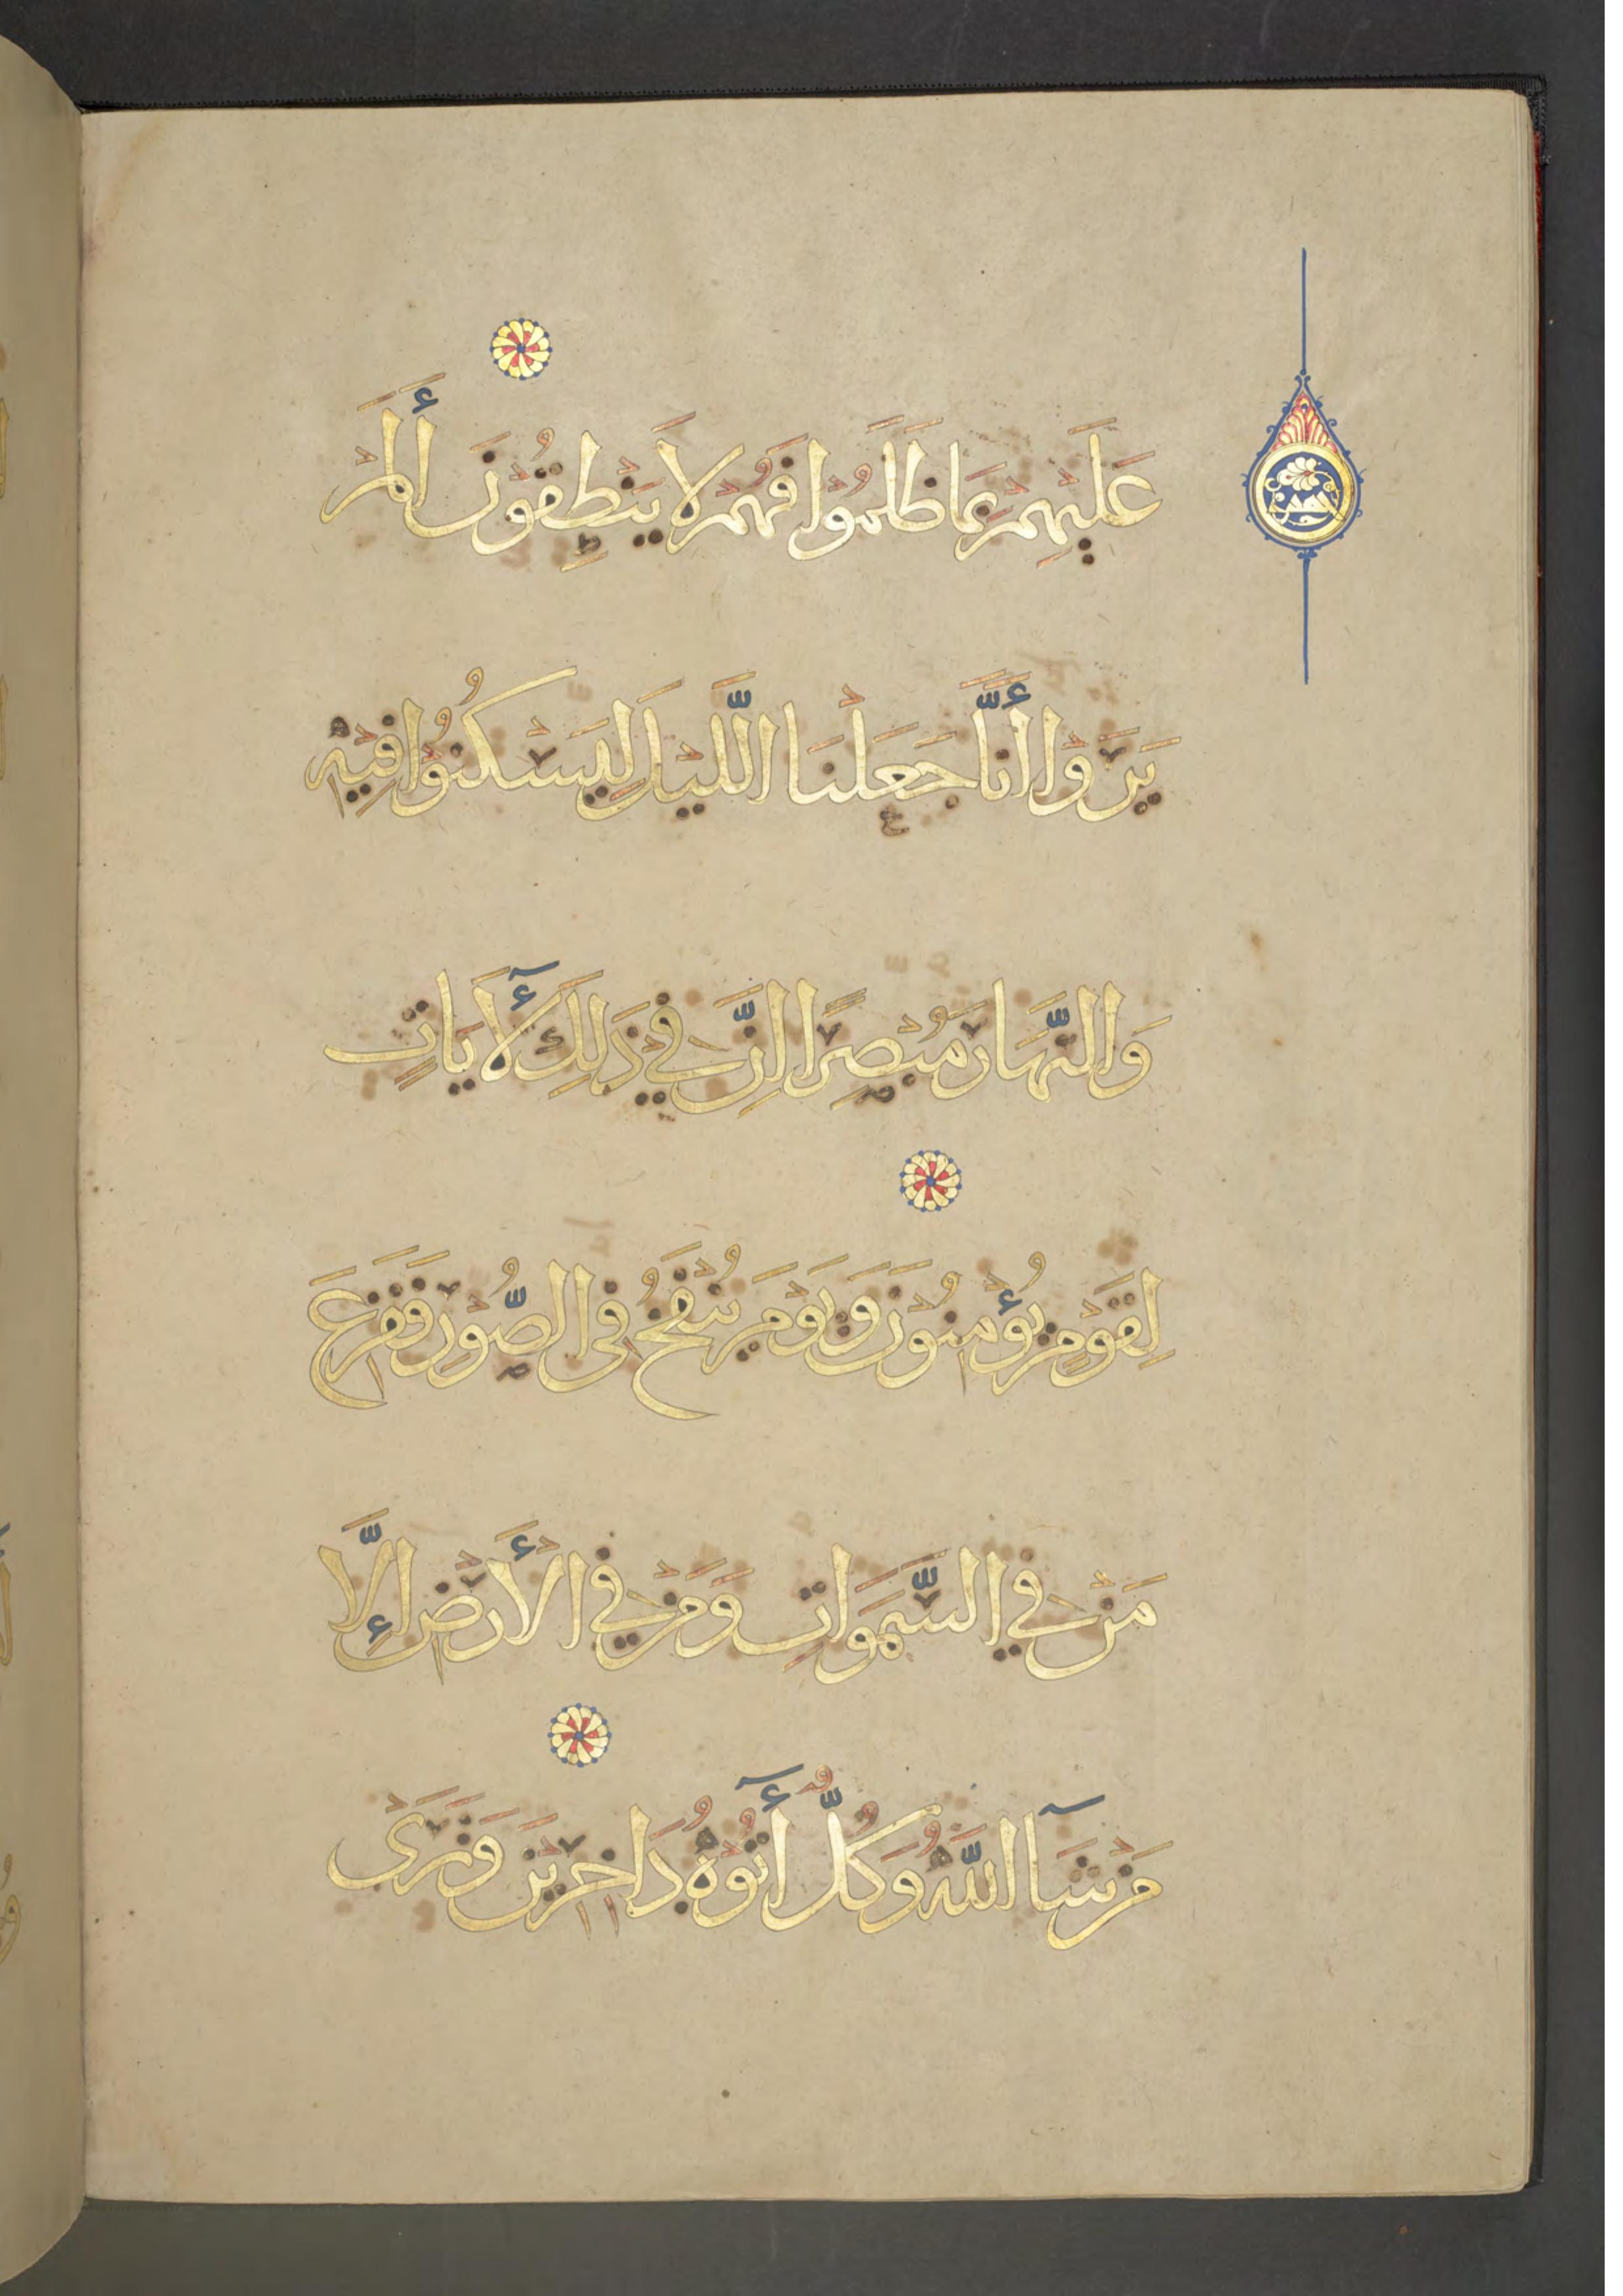 عَلَيْهِمْ بِمَا ظَلَمُوا فَهُمْ لَا يَنْطِقُونَ أَلَمْ
يَرَوْا أَنَّا جَعَلْنَا اللَّيْلَ لِيَسْكُنُوا فِيْهِ
وَالنَّهَارَ مُبْصِرًا اِنَّ فِي ذَلِكَ لَأٓيَاتٍ
لِقَوْمٍ يُؤْمِنُوْنَ وَيَوْمَ يُنْفَخُ فِى الصُّوْرِ فَفَزِعَ
مَنْ فِي السَّمَوَاتِ وَمَنْ فِي الْأَرْضِ إِلَّا
مَنْ شَآ اللَّهُ وَكُلٌّ أَٓتُوْهُ دَاخِرِيْنَ وَتَرَى